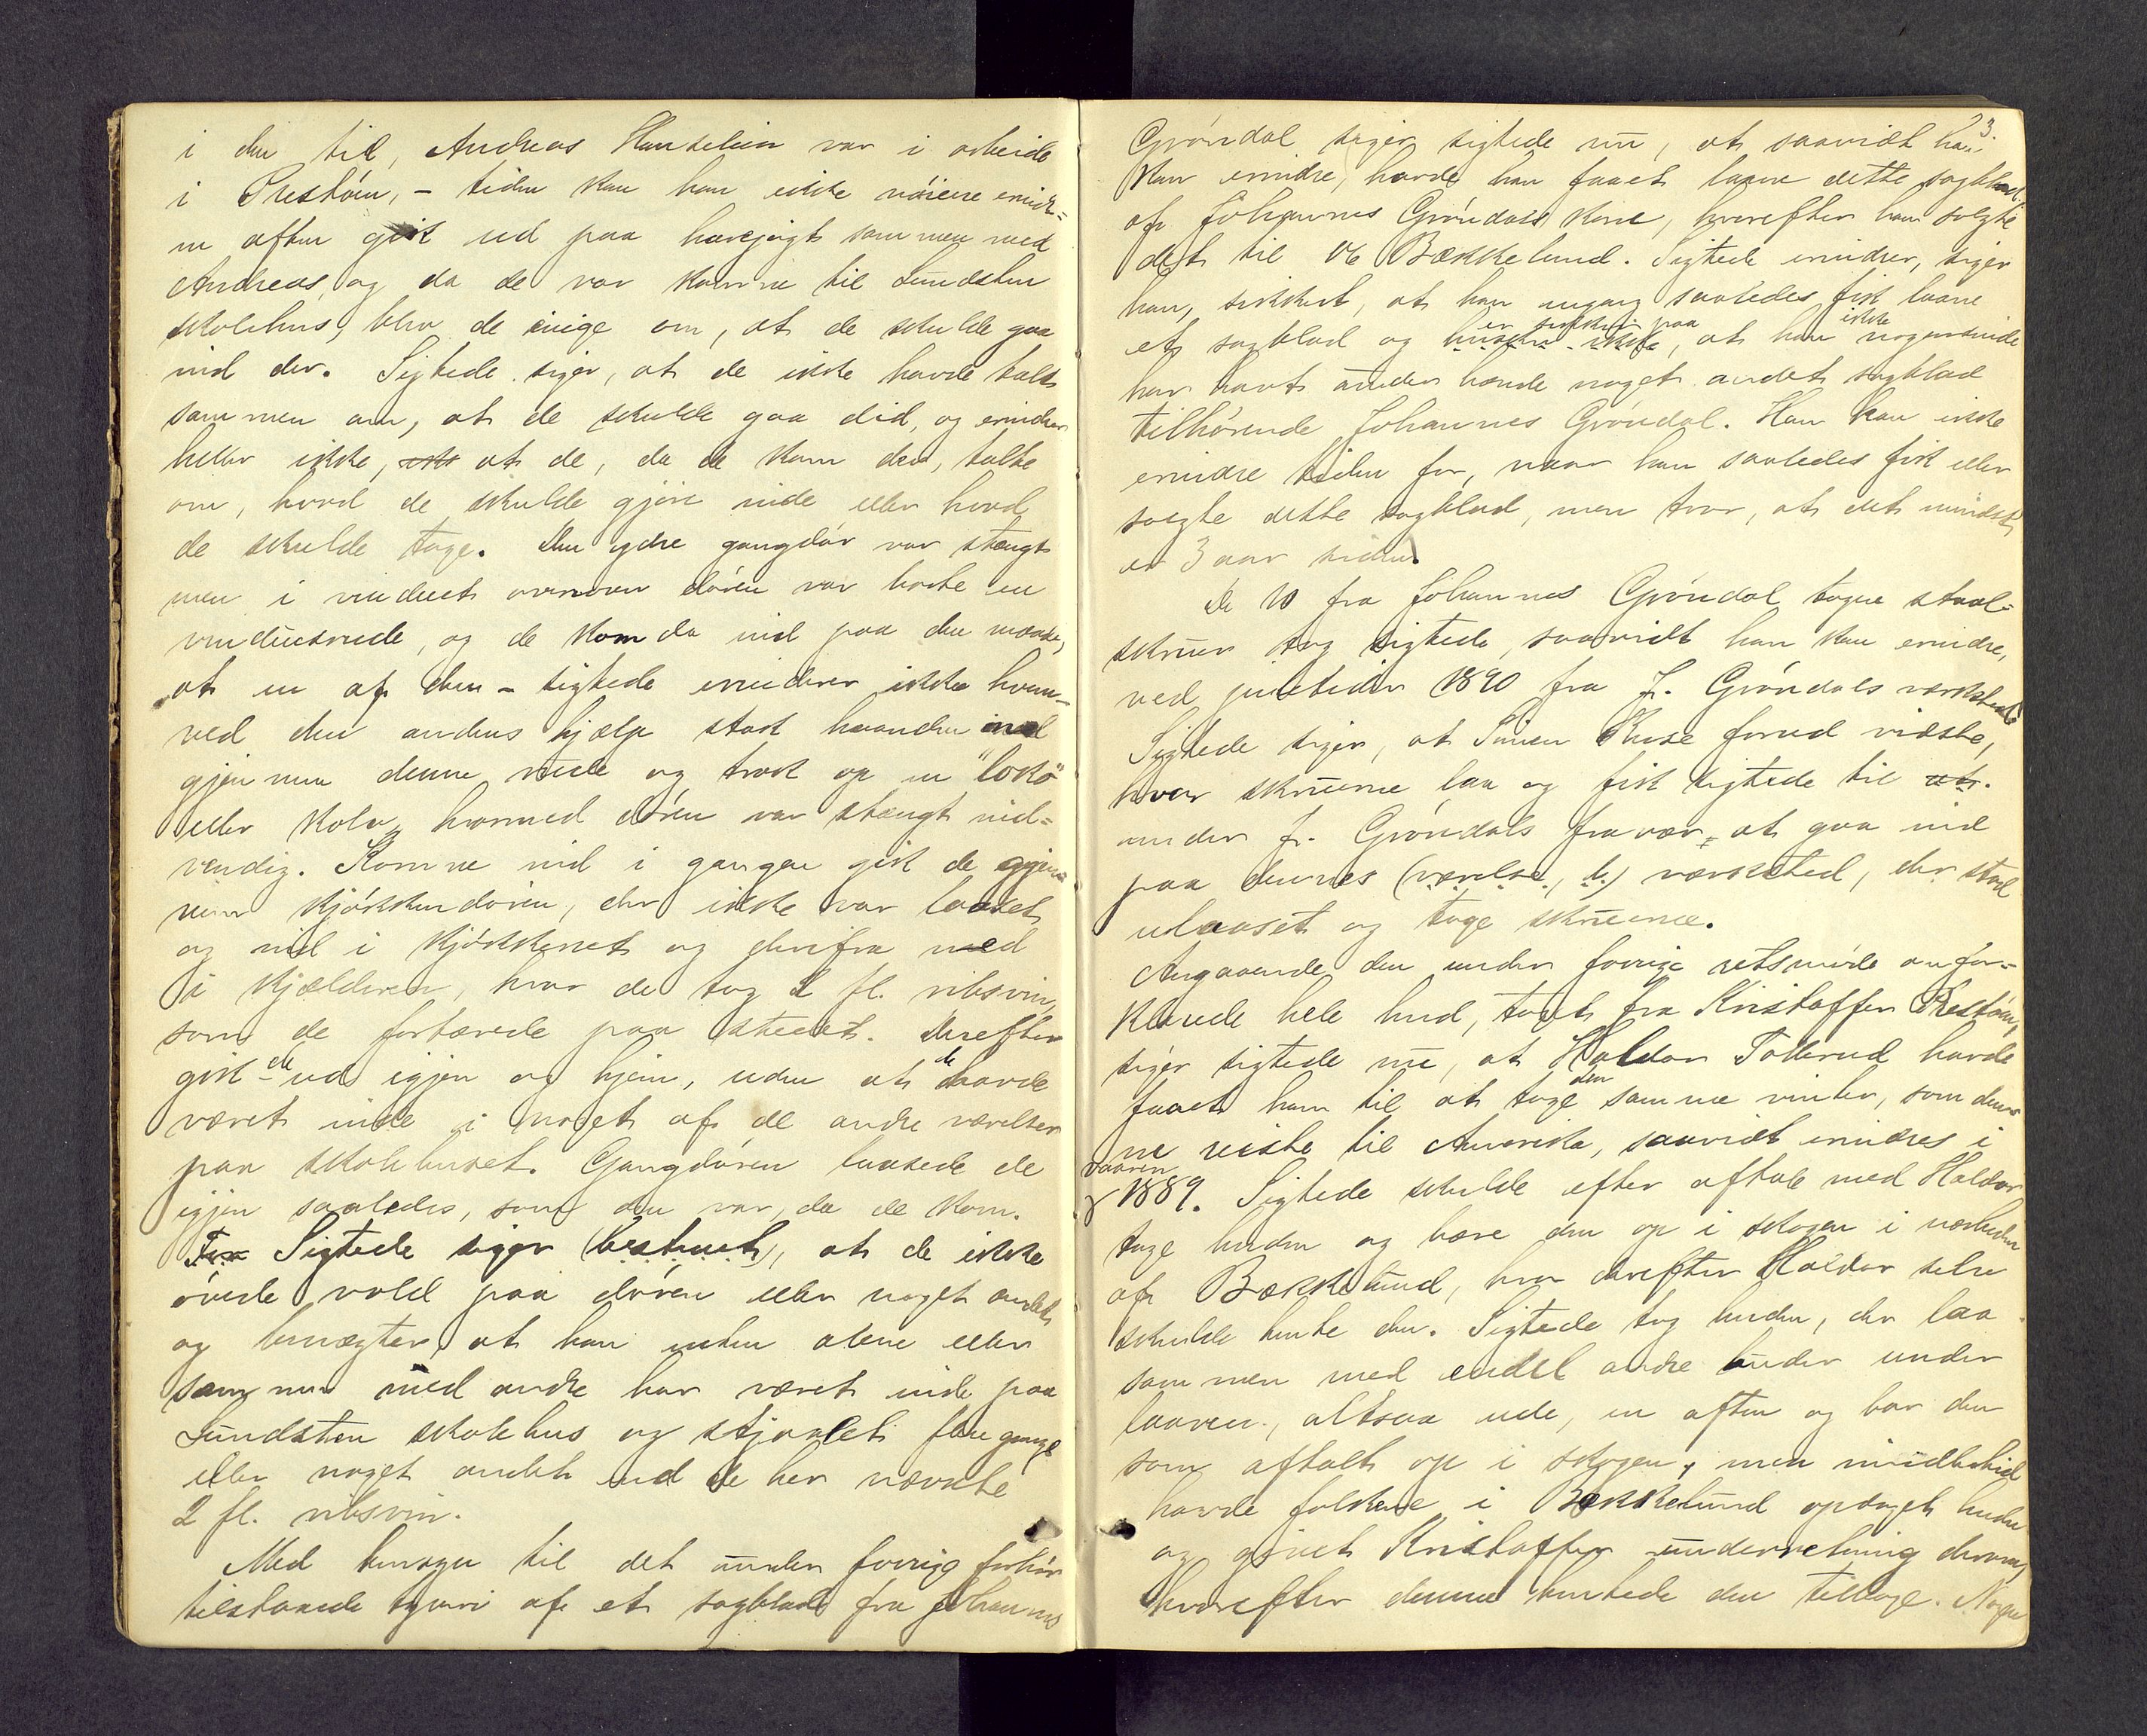 i den tid, Andreas Hanseleien var i arbeide
i Prestöien, - tiden kan han ikke nöiere erindre=
en aften gik ud paa harejagt sammen med
Andreas, og da de var komne til Lundsten
skolehus, blev de einige om, at de skulde gaa
ind der. Sigtede siger, at de ikke havde talt
sammen om, at de skulde gaa did, og erindrer
heller ikke, at de, da de kom der, talte
om, hvad de skulde gjöre inde eller hvad
de skulde tage. Den ydre gangdör var stængt
men i vinduet ovenover dören var borte en
vinduesrude, og de kom da ind paa den maade,
at en af dem - sigtede erindrer ikke hvem -
ved den andens hjælp stak haanden ind
gjennem denne rude og trak op en "loko"
eller kolv, hvormed dören var stængt ind=
vendig. Komne ind i gangen gik de gjen=
nem kjökkendören, der ikke var laaset
og ind i kjökkenet og derifra ned
i kjælderen, hvor de tog 2 fl. ribsvin,
som de fortærede paa stedet. Derefter
gik de ud igjen og hjem, uden at de havde
været inde i noget af de andre værelser
paa skolehuset. Gangdören laasede de
igjen saaledes, som den var, da de kom.
Sigtede siger (bestemt), at de ikke
övede vold paa dören eller noget andet
og benægter, at han enten alene eller
sammen med andre har været inde paa
Lundsten skolehus og stjaalet flere gange
eller noget andet end de her nævnte
2 fl. ribsvin.
Med hensyn til det under forrige forhör
tilstaaede tyveri af et sagblad fra Johannes
3.
Gröndal siger sigtede nu, at saavidt han
kan erindre, havde han faaet laane dette sagblad
af Johannes Gröndals kone, hvorefter han solgte
det til Bækkelund. Sigtede erindrer, siger
han, sikkert, at han engang saaledes fik laane
er sikker paa ikke
et sagblad og husker ikke, at han nogensinde
har havt under hænde noget andet sagblad
tilhörende Johannes Gröndal. Han kan ikke
erindre tiden for, naar han saaledes fik eller
solgte dette sagblad, men tror, at det mindst
er 3 aar siden.
De 10 fra Johannes Gröndal tagne staal=
skruer tog sigtede, saavidt han kan erindre,
ved juletider 1890 fra J. Gröndals værksted
Sigtede siger, at Simen Kuse forud vidste,
hvor skruerne laa og fik sigtede til at
under J. Gröndals fravær at gaa ind
paa dennes (værelse, d.) værksted, der stod
ulaaset og tage skruerne.
Angaaende den under forrige retsmöde omfor=
klarede hele hud, taget fra Kristoffer Prestöien,
siger sigtede nu, at Haldor Tollerud havde
den
faaet ham til at tage samme vinter, som den=
ne reiste til Amerika, saavidt erindres i
vaaren
1889. Sigtede skulde efter aftale med Haldor
tage huden og bære den op i skogen i nærheden
af Bækkelund, hvor derefter Haldor selv
skulde hente den. Sigtede tog huden, der laa
sammen med endel andre huder under
laaven, altsaa ude, en aften og bar den
som aftalt op i skogen, men imidlertid
havde folkene i Bækkelund opdaget huden
og givet Kristoffer underretning derom,
hvorefter denne hentede den tilbage. Nogen